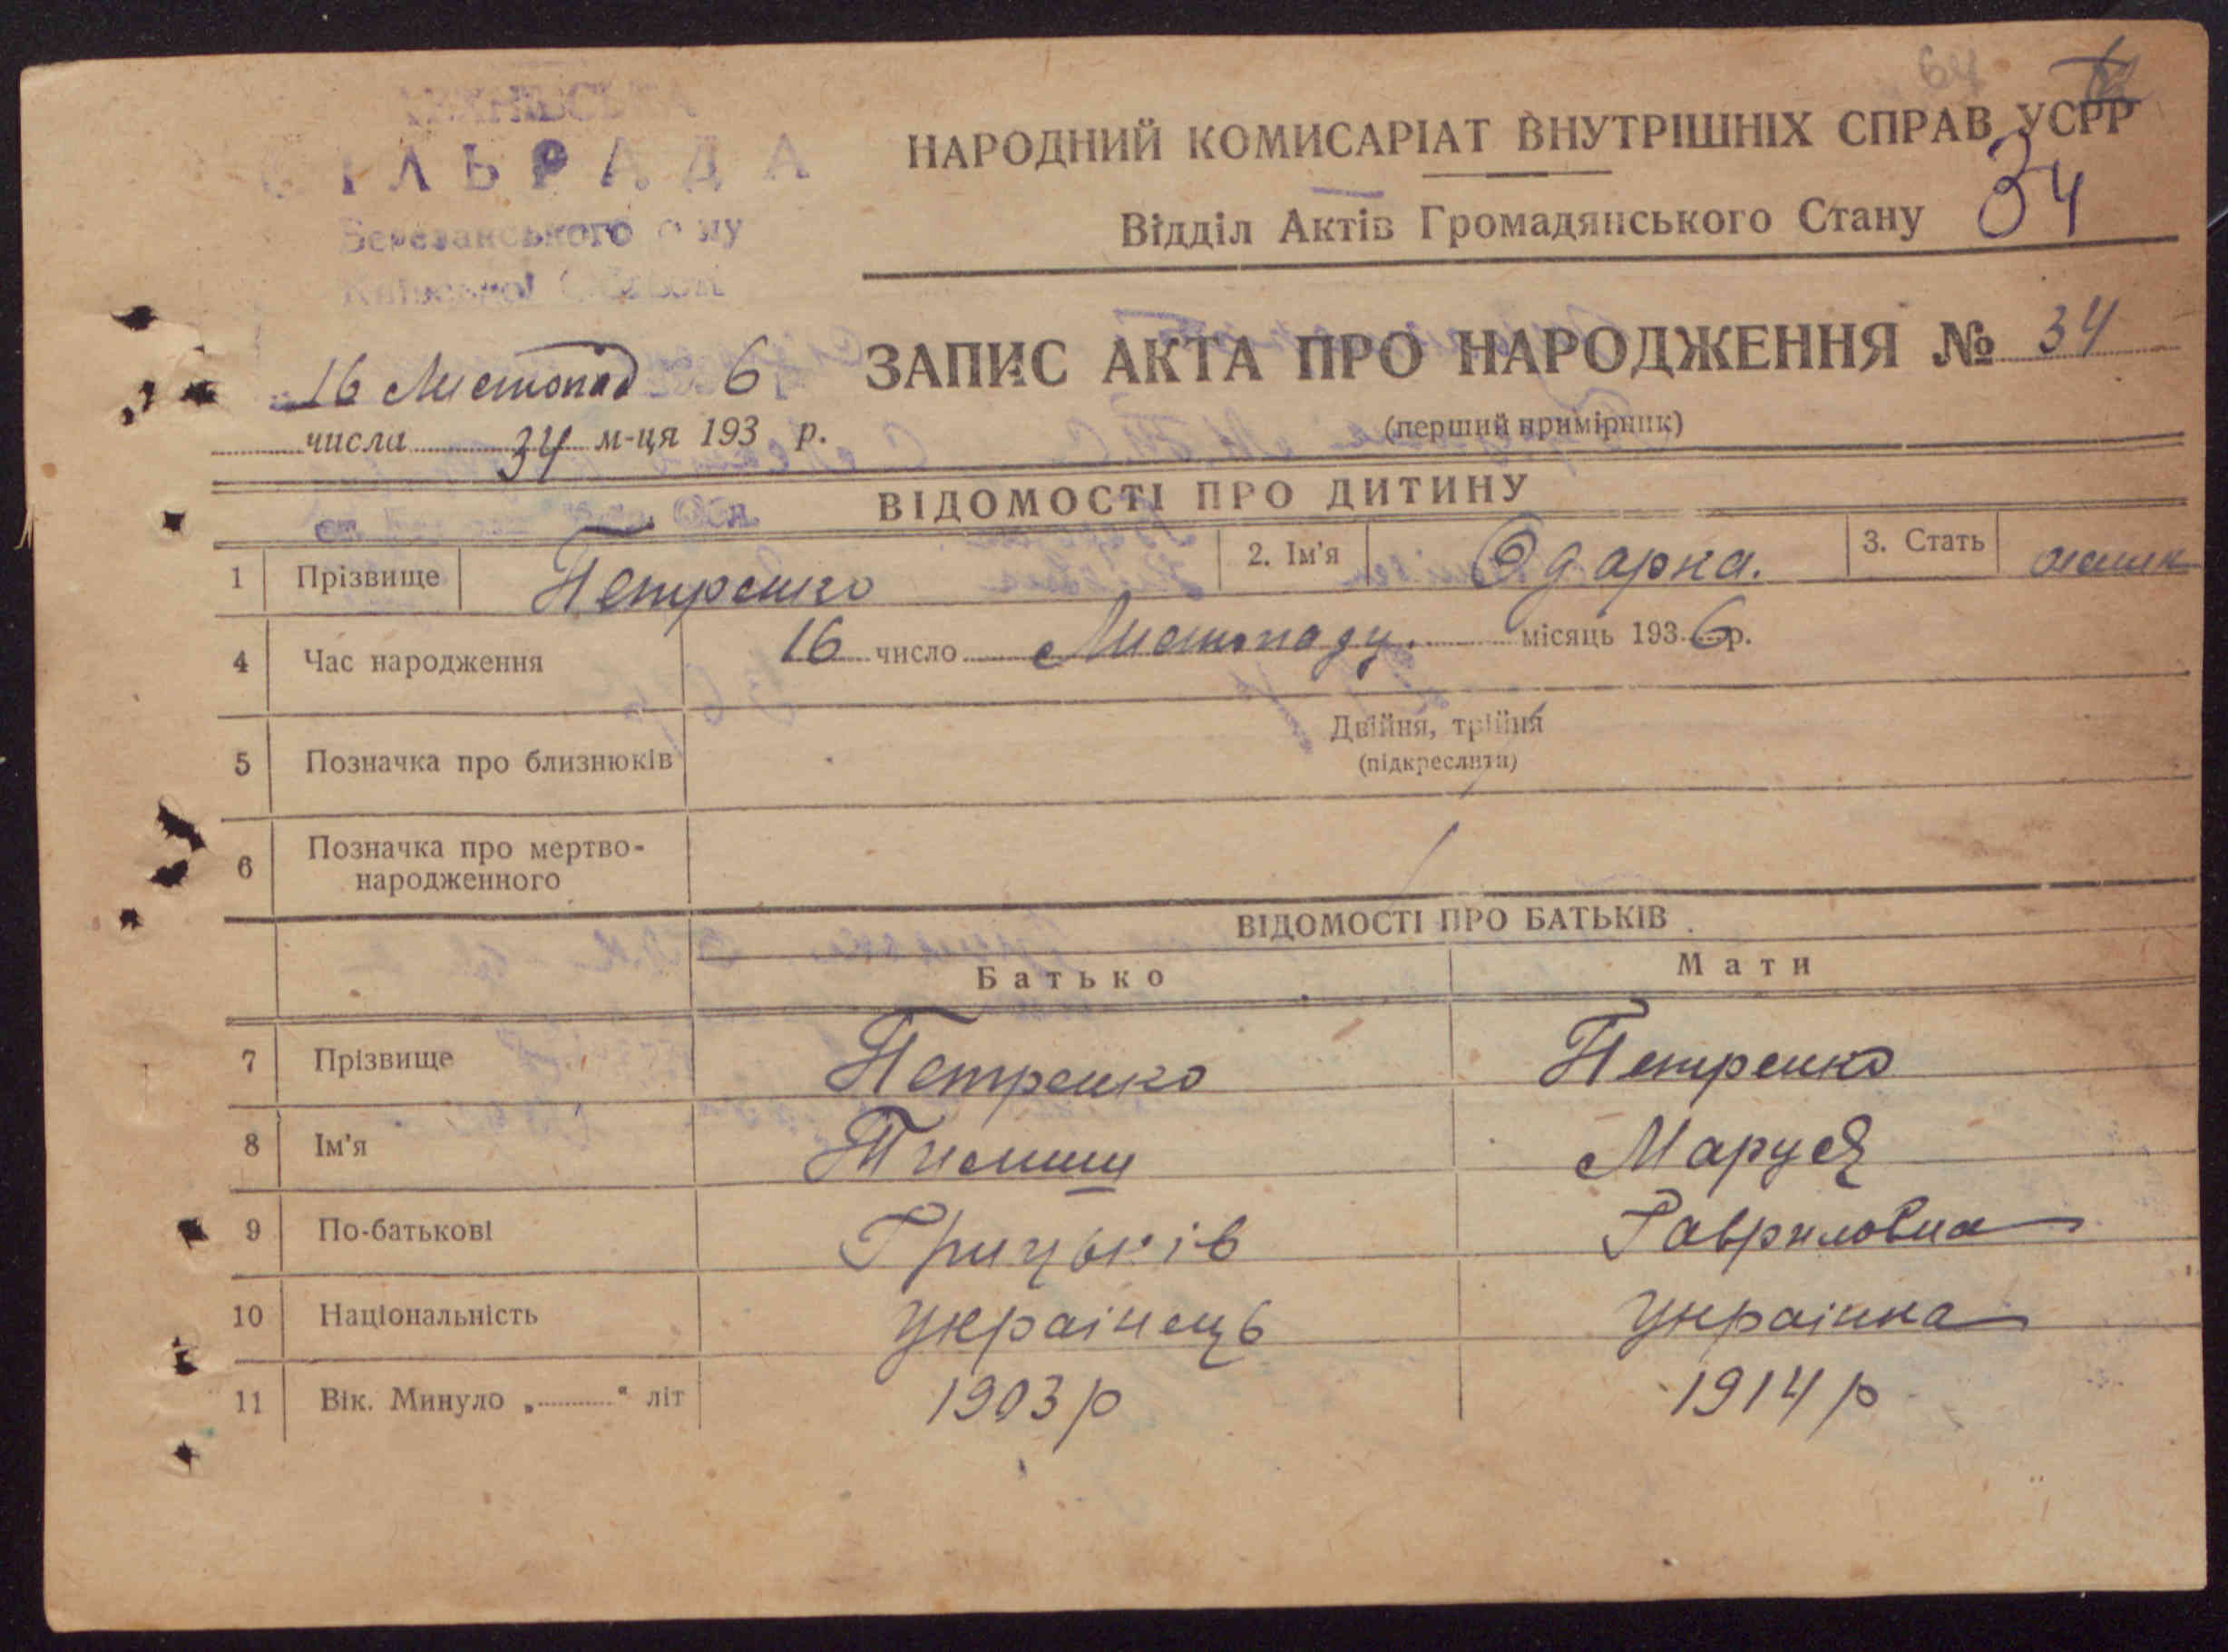 СІЛЬРАДА
Березанського
64
НАРОДНИЙ КОМИСАРІАТ ВНУТРІШНІХ СПРАВ УСРР
Відділ Актів Громадянського Стану 34
ЗАПИС АКТА ПРО НАРОДЖЕННЯ № 34
(перший примірник)
16 Листопад 6
числа 34 м-ця 193 р.
ВІДОМОСТІ ПРО ДИТИНУ
1 Прізвище Петренко 2. Ім'я Одарка. 3. Стать
4 Час народження 16 число Листопаду. місяць 193 6 р.
5 Позначка про близнюків Двійня, трійня
(підкреслити)
6 Позначка про мертво-
народженного
ВІДОМОСТІ ПРО БАТЬКІВ
Батько Мати
7 Прізвище Петренко Петренко
8 Ім'я Тимиш Маруся
9 По-батькові Грицьків Гавриловна
10 Національність Українець Українка
11 Вік. Минуло „ “ літ 1903 р 1914 р